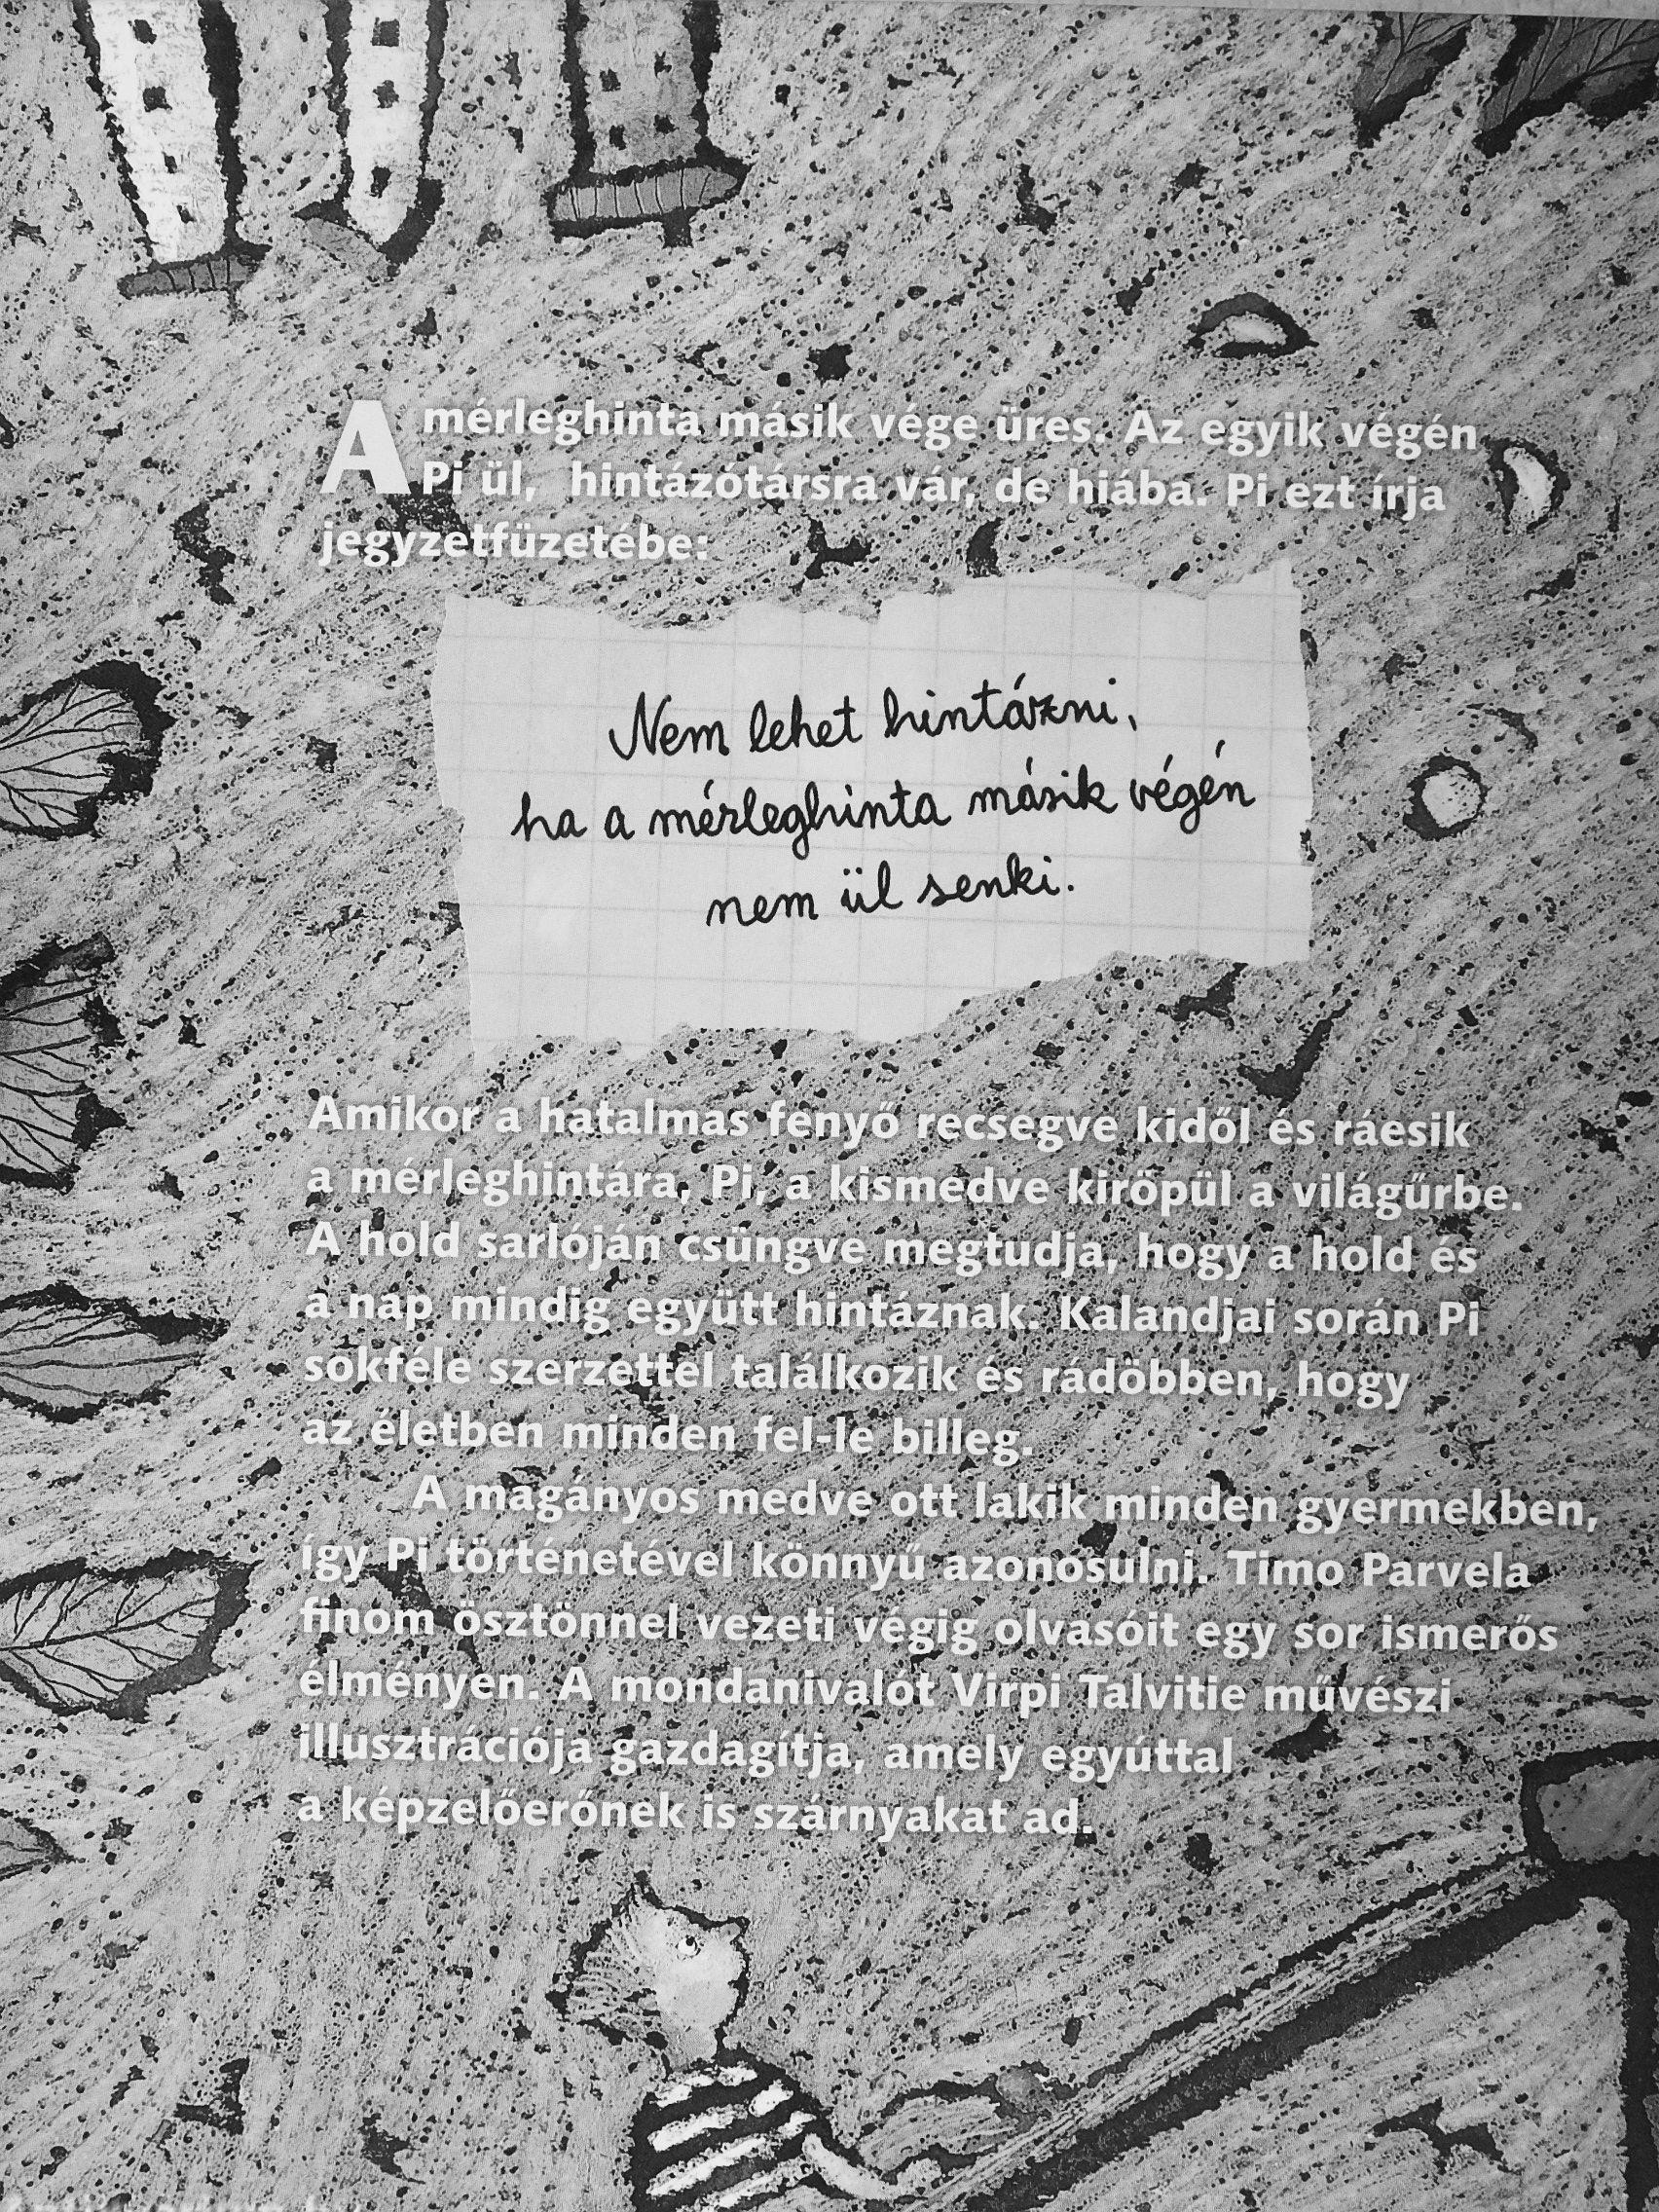 A mérleghinta másik vége üres. Az egyik végén
Pi ül, hintázótársra vár, de hiába. Pi ezt írja
jegyzetfüzetébe:
Nem lehet hintázni,
ha a mérleghinta másik végén
nem ül senki.
Amikor a hatalmas fenyő recsegve kidől és ráesik
a mérleghintára, Pi, a kismedve kiröpül a világűrbe.
A hold sarlóján csüngve megtudja, hogy a hold és
a nap mindig együtt hintáznak. Kalandjai során Pi
sokféle szerzettel találkozik és rádöbben, hogy
az életben minden fel-le billeg.
A magányos medve ott lakik minden gyermekben,
így Pi történetével könnyű azonosulni. Timo Parvela
finom ösztönnel vezeti végig olvasóit egy sor ismerős
élményen. A mondanivalót Virpi Talvitie művészi
illusztrációja gazdagítja, amely egyúttal
a képzelőerőnek is szárnyakat ad.